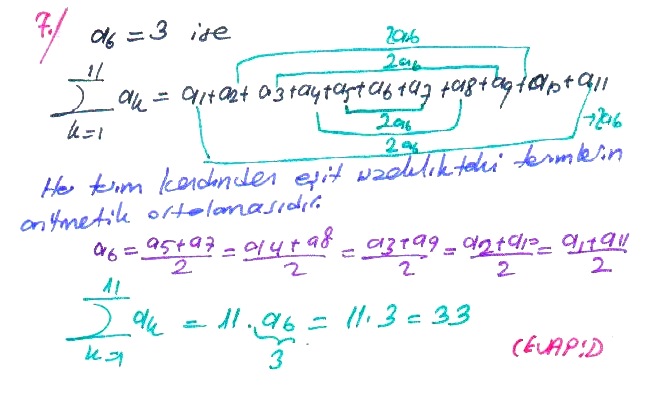 7./ a6 = 3 ise
2a6
2a6
11
∑ ak = a1+a2+a3+a4+a5+a6+a7+a8+a9+a10+a11
k=1
2a6
2a6
→2a6
Her terim kendinden eşit uzaklıktaki terimlerin
aritmetik ortalamasıdır.
a6 = a5+a7/2 = a4+a8/2 = a3+a9/2 = a2+a10/2 = a1+a11/2
11
∑ ak = 11. a6 = 11.3 = 33
k=1
3
CEVAP:D